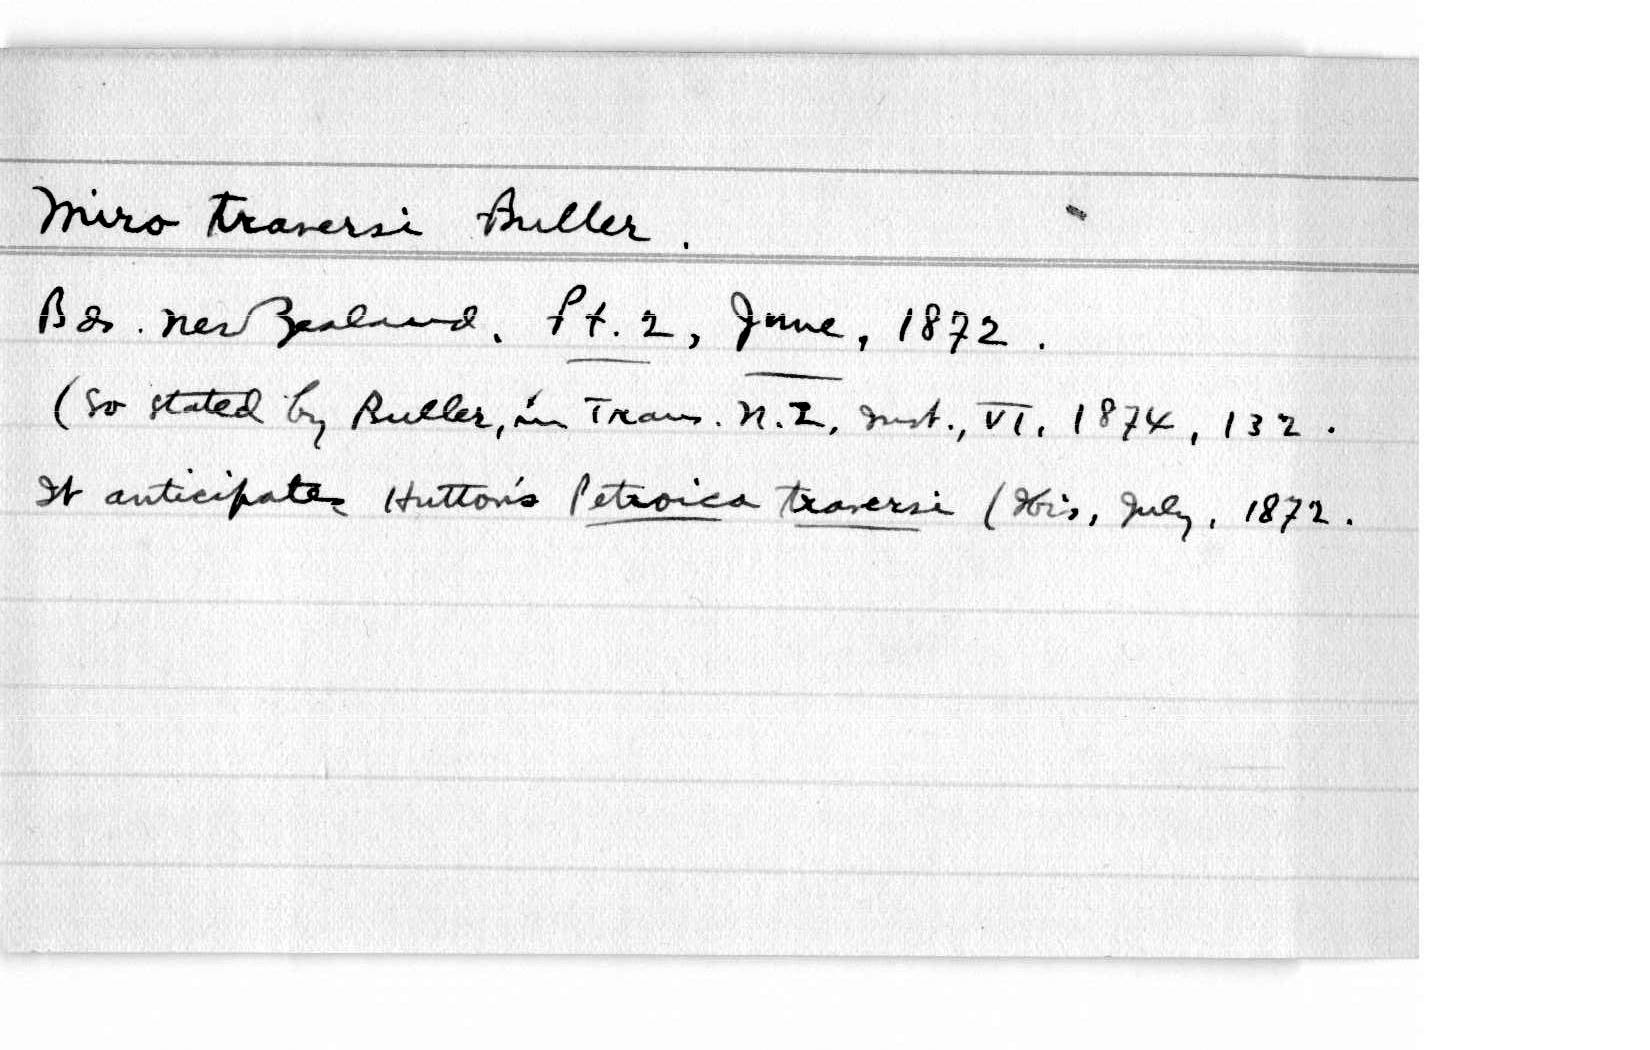 Miro traversi Buller.
Bds. New Zealand. Pt. 2, June, 1872.
(So stated by Buller, in Trans. N.Z. Inst., VI, 1874, 132.
It anticipates Hutton's Petroica traversi (Ibis, July, 1872.